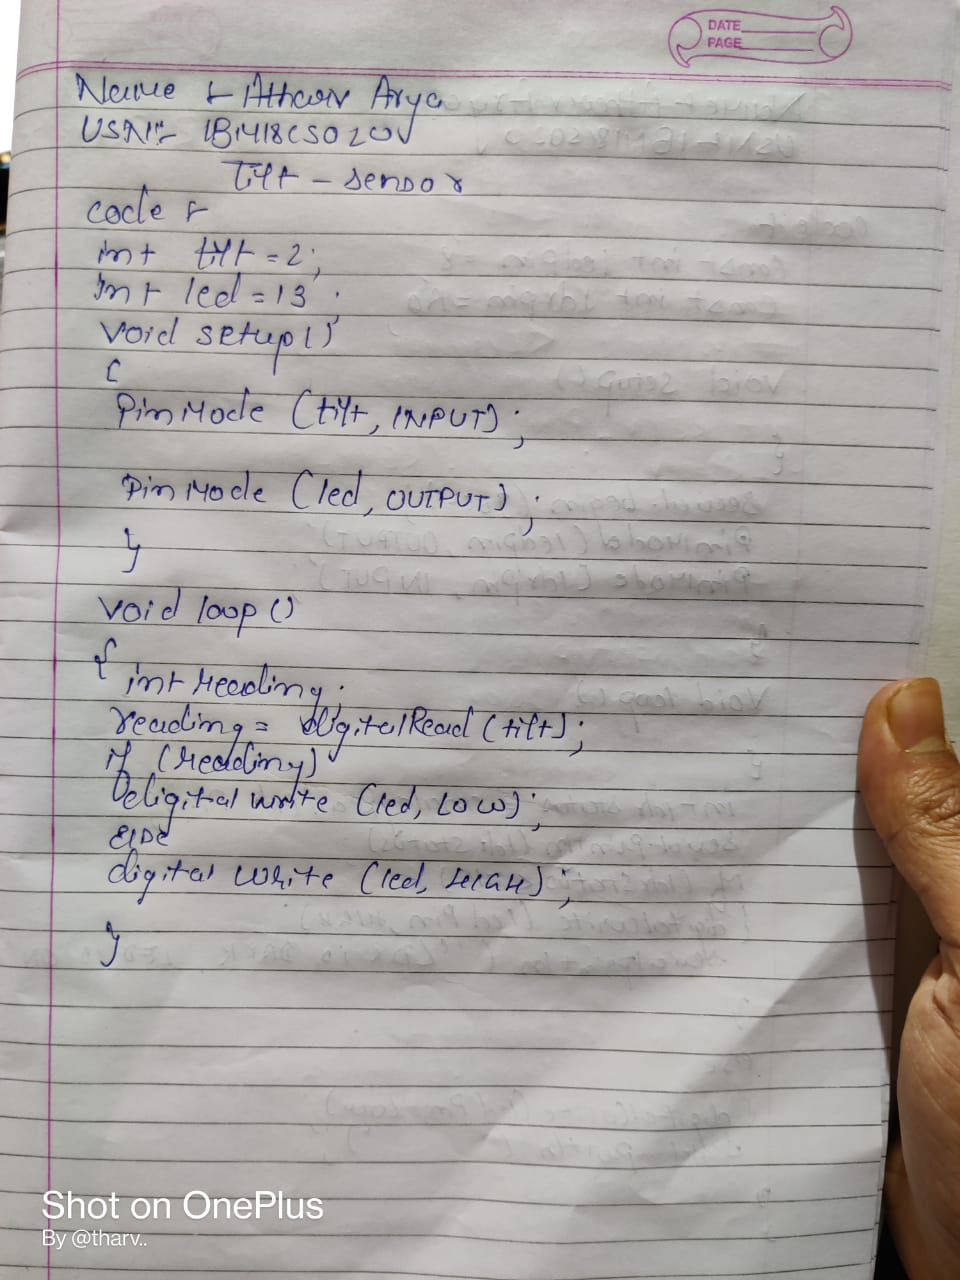 DATE
PAGE
Name :- Atharv Arya
USN:- 1BM18CS020
Tilt - sensor
code :-
int tilt = 2;
int led = 13;
void setup()
{
PinMode (tilt, INPUT);
PinMode (led, OUTPUT);
}
void loop ()
{ int reading;
reading = digitalRead (tilt);
if (reading)
digital write (led, LOW);
else
digital write (led, HIGH);
}
Shot on OnePlus
By @tharv..